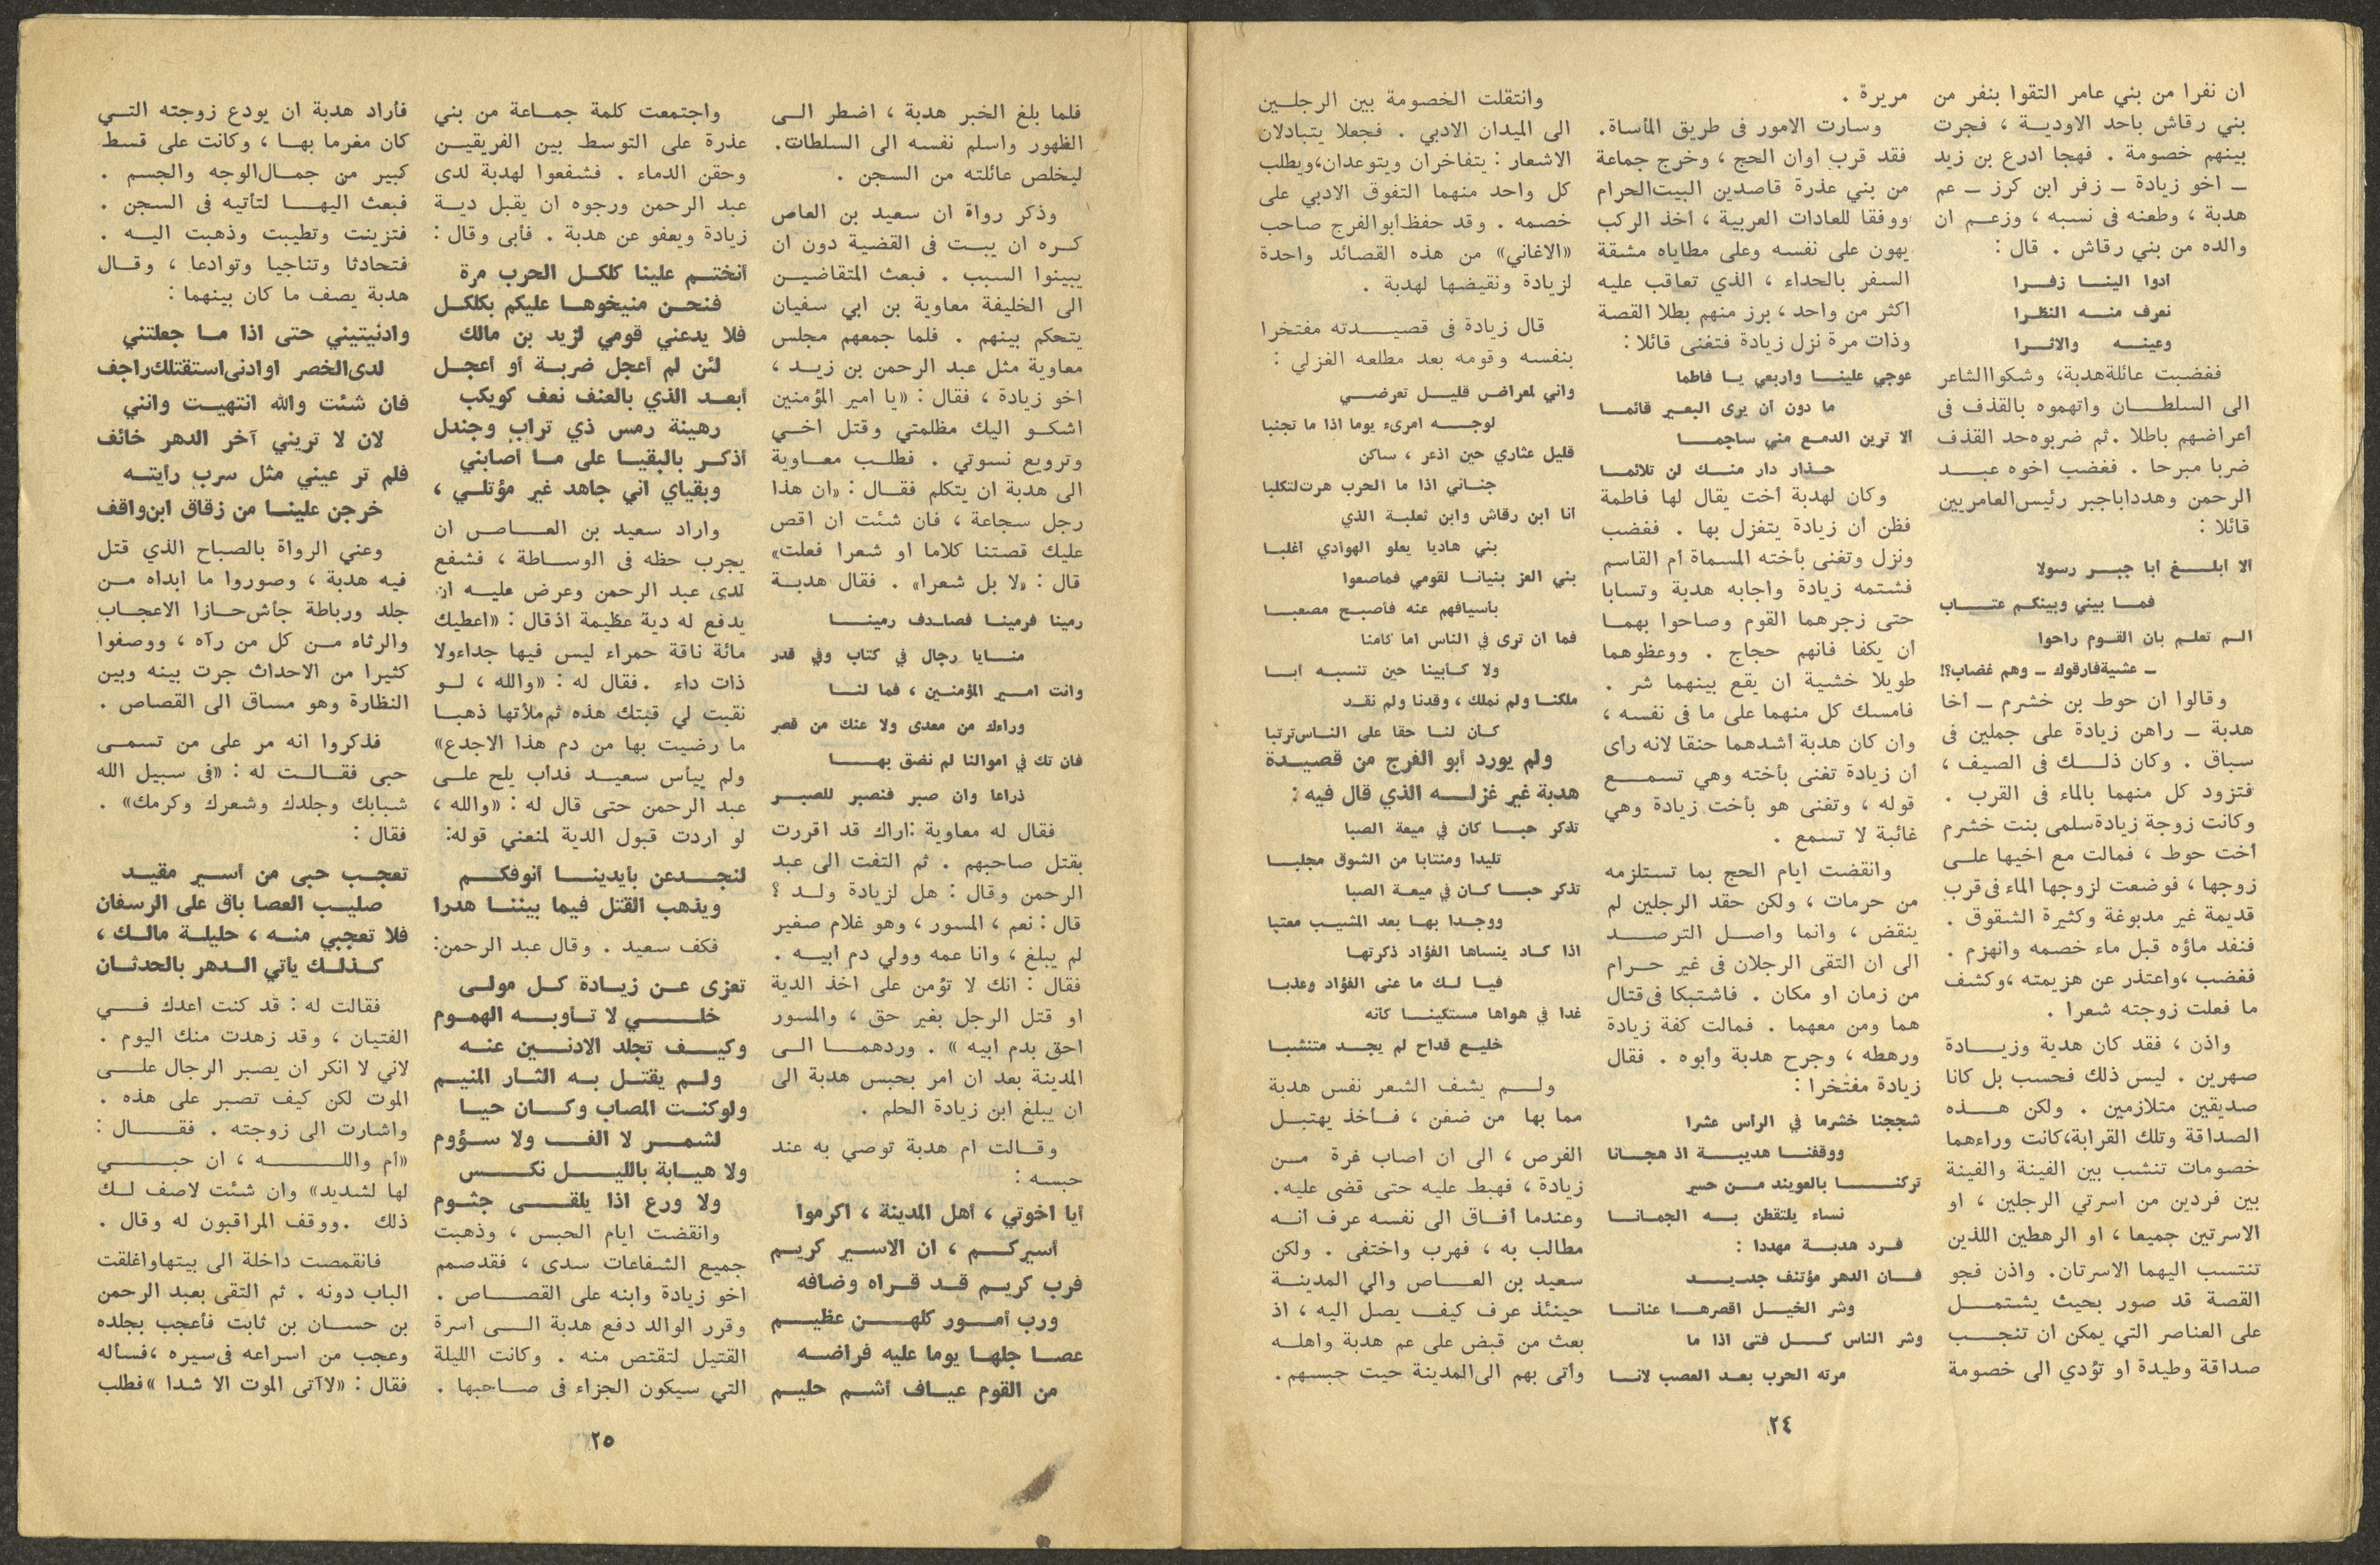 ان نفرا من بني عامر التقوا بنفر من
بني رقاش باحد الاوديــة ، فجرت
بينهم خصومة . فهجا ادرع بن زيد
ــ اخو زيادة ــ زفر ابن كرز ــ عم
هدبة ، وطعنه فى نسبه ، وزعــم ان
والده من بني رقاش . قال :
ادوا الينــا زفــرا
نعرف منــه النظــرا
وعينــه والاثــرا
فغضبت عائلةهدبة، وشكواالشاعر
الى السلطــان واتهموه بالقذف فى
أعراضهم باطلا .ثم ضربوه‌حد القذف
ضربا مبرحا . فغضب اخوه عبــد
الرحمن وهدداباجبر رئيس‌العامريين
قائلا :
الا ابلــغ ابا جبــر رسولا
فمــا بيني وبينكم عتــاب
الــم تعلــم بان القــوم راحوا
ــ عشيةفارقوك ــ وهم غضاب؟!
وقالوا ان حوط بن خشرم ــ أخا
هدبة ــ راهن زيادة على جملين فى
سباق . وكان ذلــك فى الصيف ،
فتزود كل منهما بالماء فى القرب .
وكانت زوجة زيادةسلمى بنت خشرم
أخت حوط ، فمالت مع اخيها علــى
زوجها ، فوضعت لزوجها الماء فى‌قرب
قديمة غير مدبوغة وكثيرة الشقوق .
فنفد ماؤه قبل ماء خصمه وانهزم .
فغضب ،واعتذر عن هزيمته ،وكشف
ما فعلت زوجته شعرا .
واذن ، فقد كان هدبة وزيــادة
صهرين . ليس ذلك فحسب بل كانا
صديقين متلازمين . ولكن هــذه
الصداقة وتلك القرابة،كانت وراءهما
خصومات تنشب بين الفينة والفينة
بين فردين من اسرتي الرجلين ، او
الاسرتين جميعا ، او الرهطين اللذين
تنتسب اليهما الاسرتان. واذن فجو
القصة قد صور بحيث يشتمــل
على العناصر التي يمكن ان تنجــب
صداقة وطيدة او تؤدي الى خصومة
مريرة .
وسارت الامور فى طريق المأساة.
فقد قرب اوان الحج ، وخرج جماعة
من بني عذرة قاصدين البيت‌الحرام
ووفقا للعادات العربية ، أخذ الركب
يهون على نفسه وعلى مطاياه مشقة
السفر بالحداء ، الذي تعاقب عليه
اكثر من واحد ، برز منهم بطلا القصة
وذات مرة نزل زيادة فتغنى قائلا :
عوجي علينــا واربعي يــا فاطما
ما دون ان يرى البعــير قائمــا
الا ترين الدمــع مني ساجمــا
حــذار دار منــك لن تلائمــا
وكان لهدبة أخت يقال لها فاطمة
فظن أن زيادة يتغزل بها . فغضب
ونزل وتغنى بأخته المسماة أم القاسم
فشتمه زيادة واجابه هدبة وتسابا
حتى زجرهما القوم وصاحوا بهمــا
أن يكفا فانهم حجاج . ووعظوهما
طويلا خشية ان يقع بينهما شر .
فامسك كل منهما على ما فى نفسه ،
وان كان هدبة أشدهما حنقا لانه رأى
أن زيادة تغنى بأخته وهي تسمــع
قوله ، وتغنى هو بأخت زيادة وهي
غائبة لا تسمع .
وانقضت ايام الحج بما تستلزمه
من حرمات ، ولكن حقد الرجلين لم
ينقض ، وانما واصــل الترصــد
الى ان التقى الرجلان فى غير حــرام
من زمان او مكان . فاشتبكا فى‌قتال
هما ومن معهما . فمالت كفة زيادة
ورهطه ، وجرح هدبة وأبوه . فقال
زيادة مفتخرا :
شججنا خشرما في الرأس عشرا
ووقفنــا هديبــة اذ هجــانا
تركنــا بالعويند مــن حسير
نساء يلتقطن بــه الجمانــا
فــرد هدبــة مهددا :
فــان الدهر مؤتنف جديــد
وشر الخيــل اقصرهــا عنانــا
وشر الناس كــل فتى اذا ما
مرته الحرب بعــد العصب لانــا
وانتقلت الخصومة بين الرجلــين
الى الميدان الادبي . فجعلا يتبادلان
الاشعار : يتفاخران ويتوعدان،ويطلب
كل واحد منهما التفوق الادبي على
خصمه . وقد حفظ‌أبوالفرج صاحب
«الاغاني» من هذه القصائد واحدة
لزيادة ونقيضها لهدبة .
قال زيادة فى قصيــدته مفتخرا
بنفسه وقومه بعد مطلعه الغزلي :
واني لمعراض قليــل تعرضــي
لوجــه امرىء يوما اذا ما تجنبا
قليل عثاري حين اذعر ، ساكن
جنــاني اذا ما الحرب هرت‌لتكلبا
انا ابن رقاش وابن ثعلبــة الذي
بني هاديا يعلو الهوادي اغلبــا
بني العز بنيانــا لقومي فماصعوا
باسيافهم عنه فاصبــح مصعبــا
فما ان ترى في الناس اما كامنا
ولا كــأبينا حين تنسبــه ابــا
ملكنــا ولم نملك ، وقدنا ولم نقــد
كــان لنــا حقا على النــاس‌ترتبا
ولم يورد أبو الفرج من قصيــدة
هدبة غير غزلــه الذي قال فيه :
تذكر حبــا كان في ميعة الصبا
تليدا ومنتابا من الشوق مجلبــا
تذكر حبــا كــان في ميعــة الصبا
ووجــدا بهــا بعد المشيــب معتبا
اذا كــاد ينساها الفؤاد ذكرتهــا
فيــا لــك ما عنى الفؤاد وعذبــا
غدا في هواها مستكينــا كانه
خليــع قداح لم يجــد متنشبــا
ولــم يشف الشعر نفس هدبة
مما بها من ضغن ، فــأخذ يهتبــل
الفرص ، الى ان اصاب غرة مــن
زيادة ، فهبط عليه حتى قضى عليه.
وعندما أفــاق الى نفسه عرف أنــه
مطالب به ، فهرب واختفى . ولكن
سعيد بن العــاص والي المدينــة
حينئذ عرف كيف يصل اليه ، اذ
بعث من قبض على عم هدبة واهلــه
وأتى بهم الى‌المدينة حيت حبسهم.
٢٤
فلما بلغ الخبر هدبة ، اضطر الــى
الظهور واسلم نفسه الى السلطات.
ليخلص عائلته من السجن .
وذكر رواة ان سعيد بن العاص
كــره ان يبــت فى القضية دون ان
يبينوا السبب . فبعث المتقاضيــن
الى الخليفة معاوية بن ابي سفيان
يتحكم بينهم . فلما جمعهم مجلس
معاوية مثل عبد الرحمن بن زيــد ،
اخو زيادة ، فقال : «يا امير المؤمنين
اشكــو اليك مظلمتي وقتل اخــي
وترويع نسوتي . فطلــب معــاوية
الى هدبة ان يتكلم فقــال : «ان هذا
رجل سجاعة ، فان شئت ان اقص
عليك قصتنا كلاما او شعرا فعلت»
قال : «لا بل شعرا» . فقال هدبــة
رمينا فرمينــا فصــادف رمينــا
منــايا رجال في كتاب وفي قدر
وانت امــير المؤمنــين ، فما لنــا
وراءك من معدى ولا عنك من قصر
فان تك في اموالنا لم نضق بهــا
ذراعا وان صبر فنصبر للصبــر
فقال له معاوية :اراك قد اقررت
بقتل صاحبهم . ثم التفت الى عبد
الرحمن وقال : هل لزيادة ولــد ؟
قال : نعم ، المسور ، وهو غلام صغير
لم يبلغ ، وانا عمه وولي دم ابيــه .
فقال : انك لا تؤمن على اخذ الدية
او قتل الرجل بغير حق ، والمسور
احق بدم ابيه » . وردهمــا الــى
المدينة بعد ان امر بحبس هدبة الى
ان يبلغ ابن زيادة الحلم .
وقــالت ام هدبة توصي به عند
حبسه :
أيا اخوتي ، أهل المدينة ، اكرموا
أسيركــم ، ان الاسير كريــم
فرب كريــم قــد قــراه وضافه
ورب أمــور كلهــن عظيــم
عصــا جلهــا يوما عليه فراضــه
من القوم عيــاف أشــم حليــم
واجتمعت كلمة جمــاعة من بني
عذرة على التوسط بين الفريقيــن
وحقن الدماء . فشفعوا لهدبة لدى
عبد الرحمن ورجوه ان يقبل ديــة
زيادة ويعفو عن هدبة . فأبى وقال :
أنختــم علينا كلكــل الحرب مرة
فنحــن منيخوهــا عليكم بكلكــل
فلا يدعني قومي لزيد بن مالك
لئن لم أعجل ضربــة أو أعجــل
أبعــد الذي بالعنف نعف كويكب
رهينة رمس ذي تراب وجندل
أذكــر بالبقيــا على مــا أصابني
وبقياي اني جاهد غير مؤتلــي ،
واراد سعيد بن العــاص ان
يجرب حظه فى الوســاطة ، فشفع
لدى عبد الرحمن وعرض عليــه ان
يدفع له دية عظيمة اذقال : «اعطيك
مائة ناقة حمراء ليس فيها جداءولا
ذات داء .فقال له : «والله ، لــو
نقبت لي قبتك هذه ثم‌ملأتها ذهبــا
ما رضيت بها من دم هذا الاجدع»
ولم ييأس سعيــد فدأب يلح علــى
عبد الرحمن حتى قال له : «والله ،
لو اردت قبول الدية لمنعني قوله:
لنجــدعن بأيدينــا أنوفكــم
ويذهب القتل فيما بيننــا هدرا
فكف سعيد . وقال عبد الرحمن:
تعزى عــن زيــادة كــل مولــى
خلــي لا تــأوبــه الهمــوم
وكيــف تجلد الادنــين عنــه
ولــم يقتــل بــه الثــار المنيــم
ولوكنــت المصاب وكــان حيــا
لشمــر لا الف ولا ســؤوم
ولا هيــابة بالليــل نكــس
ولا ورع اذا يلقــى جثــوم
وانقضت ايام الحبس ، وذهبت
جميع الشفاعات سدى ، فقدصمم
اخو زيادة وابنه على القصــاص .
وقرر الوالد دفع هدبة الــى اسرة
القتيل لتقتص منه . وكانت الليلة
التي سيكون الجزاء فى صــاحبها .
فأراد هدبة ان يودع زوجته التــي
كان مغرما بهــا ، وكانت على قسط
كبير من جمــال‌الوجه والجسم .
فبعث اليهــا لتأتيه فى السجن .
فتزينت وتطيبت وذهبت اليــه .
فتحادثا وتناجيا وتوادعا ، وقــال
هدبة يصف ما كان بينهما :
وادنيتيني حتى اذا مــا جعلتني
لدى‌الخصر اوادنى‌استقتلك‌راجف
فان شئت والله انتهيــت وانني
لان لا تريني آخر الدهر خائف
فلم تر عيني مثل سرب رأيتــه
خرجن علينــا من زقاق ابن‌واقف
وعني الرواة بالصباح الذي قتل
فيه هدبة ، وصوروا ما ابداه مــن
جلد ورباطة جأش‌حــازا الاعجــاب
والرثاء مــن كل من رآه ، ووصفوا
كثيرا من الاحداث جرت بينه وبين
النظارة وهو مساق الى القصاص .
فذكروا انه مر على من تسمــى
حبى فقــالــت له : «فى سبيل الله
شبابك وجلدك وشعرك وكرمك» .
فقال :
تعجــب حبى من أسير مقيــد
صليــب العصا باق على الرسفان
فلا تعجبي منــه ، حليلــة مالــك ،
كــذلــك يأتي الــدهر بالحدثــان
فقالت له : قد كنت اعدك فــي
الفتيان ، وقد زهدت منك اليوم .
لاني لا انكر ان يصبر الرجال علــى
الموت لكن كيف تصبر على هذه .
واشارت الى زوجته . فقــال :
«أم واللــه ، ان حبــي
لها لشديد» وان شئت لاصف لــك
ذلك .ووقف المراقبون له وقال .
فانقمصت داخلة الى بيتهاواغلقت
الباب دونه . ثم التقى بعبد الرحمن
بن حســان بن ثابت فأعجب بجلده
وعجب من اسراعه فى‌سيره ،فسأله
فقال : «لاآتى الموت الا شدا »فطلب
٢٥